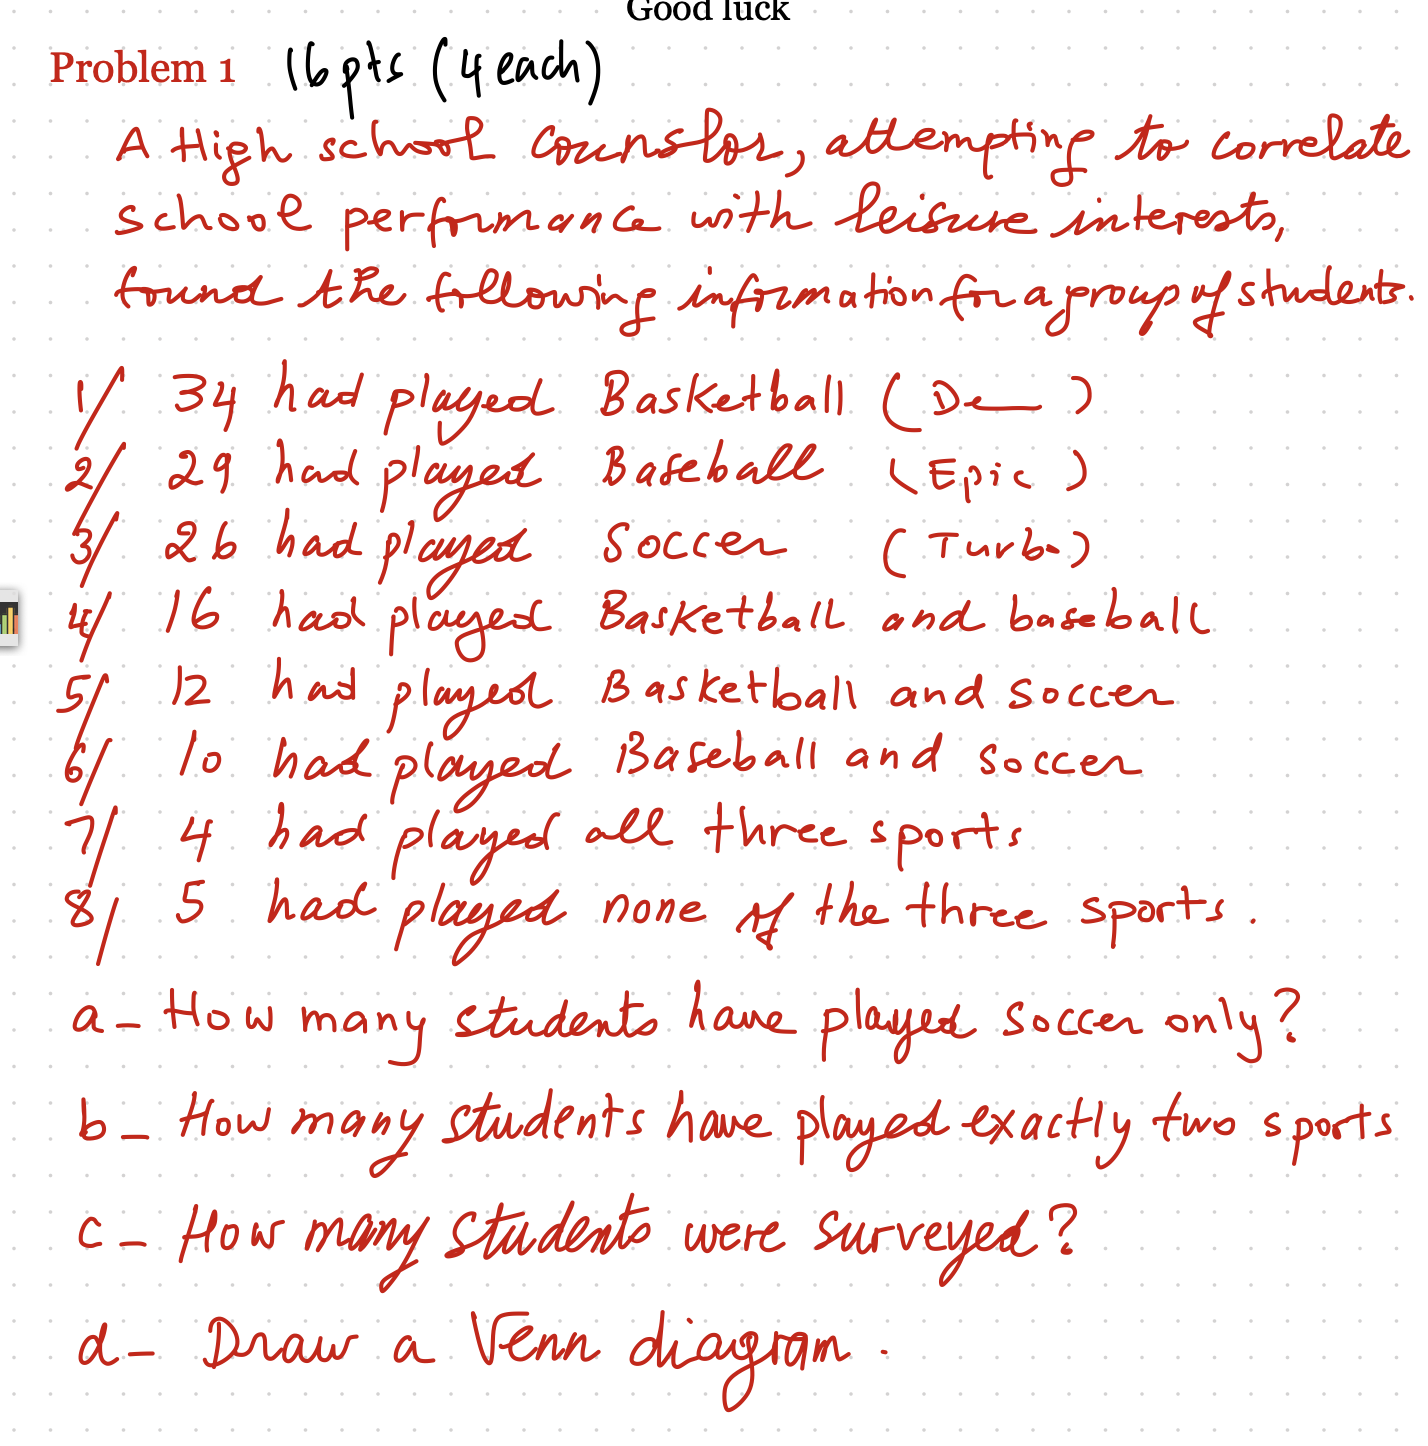 Good luck
Problem 1 16pts (4 each)
A High school counslor, attempting to correlate
school performance with leisure interests,
found the following information for a group of students.
1/ 34 had played Basketball (De )
2/ 29 had played Baseball (Epic )
3/ 26 had played Soccer (Turbo)
4/ 16 had played Basketball and baseball
5/ 12 had played Basketball and soccer
6/ 10 had played Baseball and soccer
7/ 4 had played all three sports
8/ 5 had played none of the three sports.
a- How many students have played soccer only?
b- How many students have played exactly two sports
c- How many students were surveyed?
d- Draw a Venn diagram.